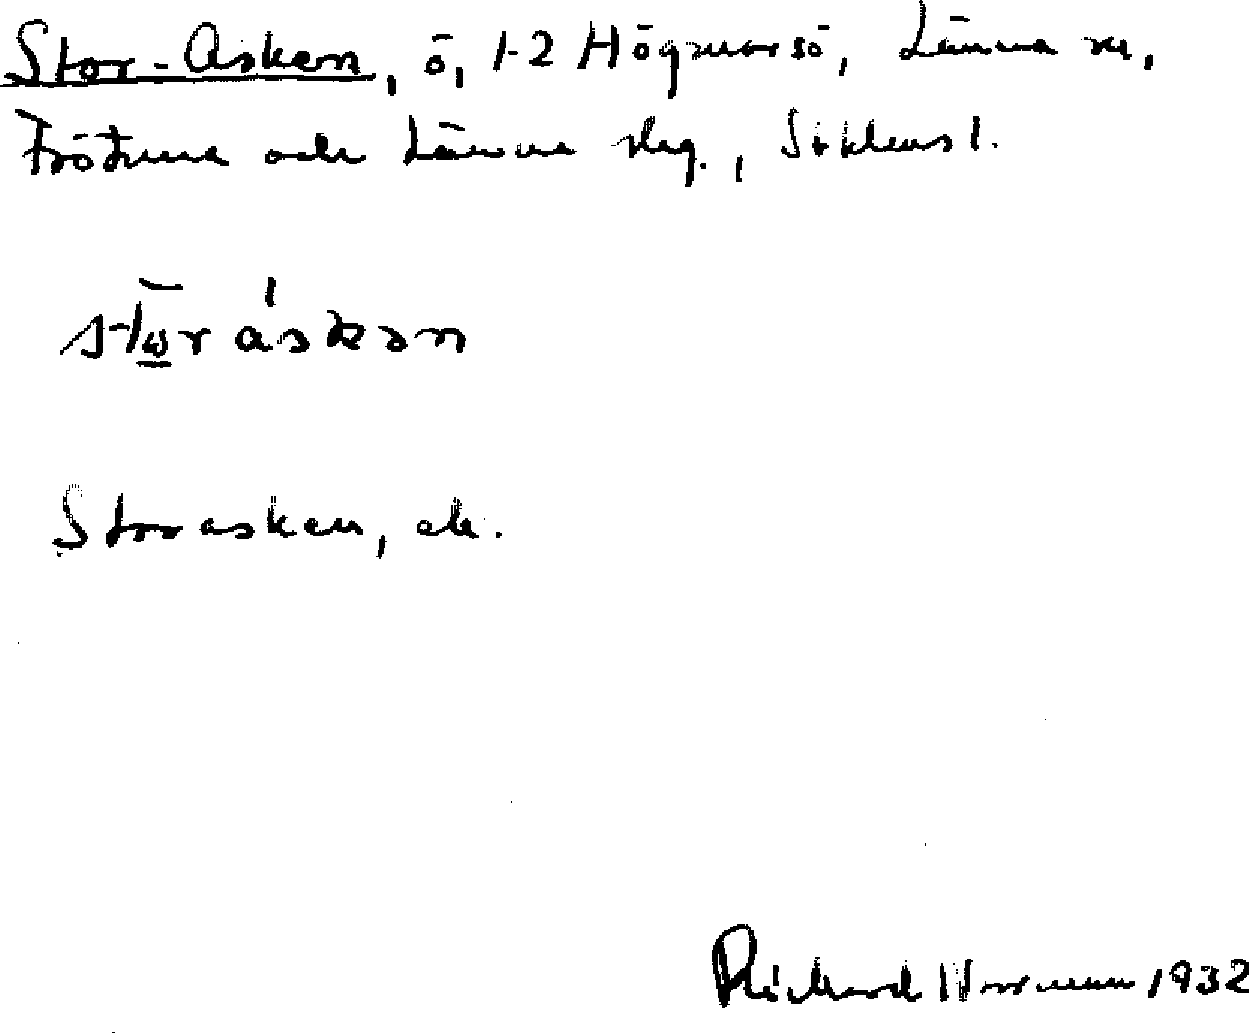 Stor-Asken, ö, 1-2 Högmarsö, Länna sn,
Frötuna och Länna skg., Sthlms l.
stω̲̄r áskən
Storasken, ek.
Rickard Norrman 1932